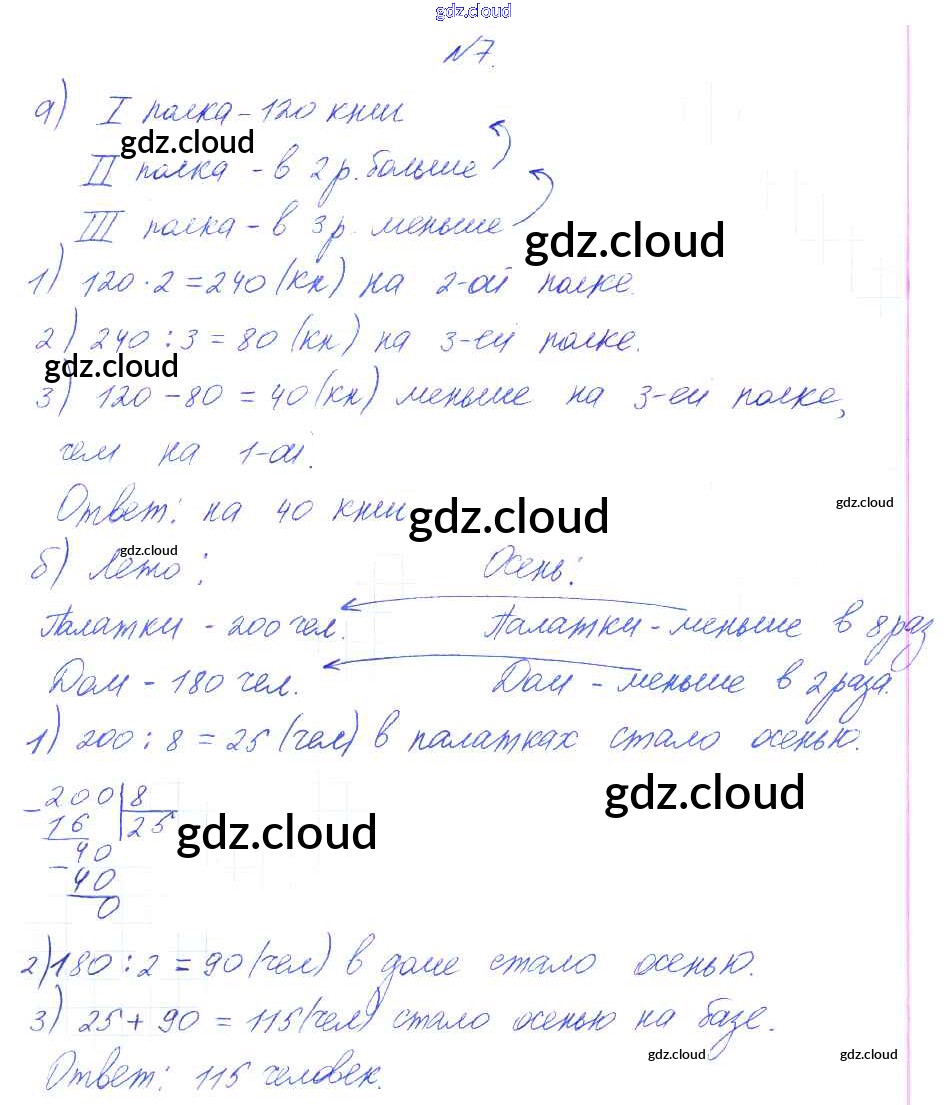 gdz.cloud
№7.
а) I полка - 120 книг
gdz.cloud
II полка - в 2 р. больше
III полка - в 3 р. меньше
gdz.cloud
1) 120 · 2 = 240 (кн) на 2-ой полке.
2) 240 : 3 = 80 (кн) на 3-ей полке.
gdz.cloud
3) 120 - 80 = 40 (кн) меньше на 3-ей полке,
чем на 1-ой.
Ответ: на 40 книг
gdz.cloud
gdz.cloud
gdz.cloud
б) Лето: Осень:
Палатки - 200 чел. Палатки - меньше в 8 раз
Дом - 180 чел. Дом - меньше в 2 раза.
1) 200 : 8 = 25 (чел) в палатках стало осенью.
gdz.cloud
- 200 | 8
16 | 25
gdz.cloud
- 40
40
0
2) 180 : 2 = 90 (чел) в доме стало осенью.
3) 25 + 90 = 115 (чел) стало осенью на базе.
gdz.cloud gdz.cloud
Ответ: 115 человек.